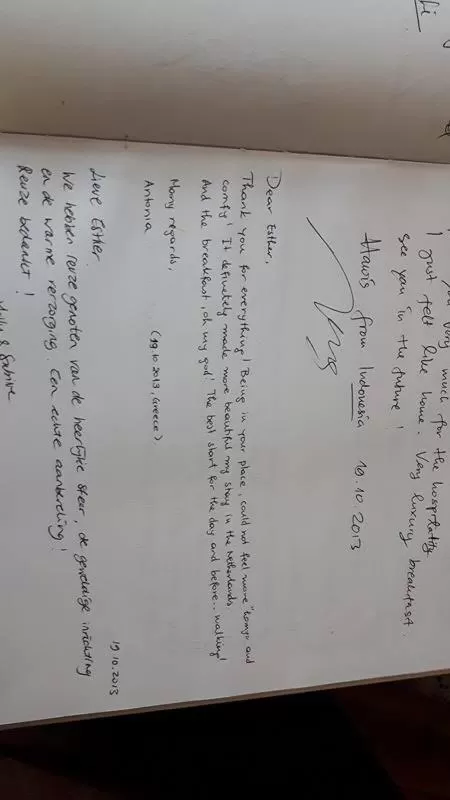 you very much for the hospitality
I just felt like home. Very luxury breakfast.
See you in the future!
Hawis from Indonesia 19.10.2013
Dear Esther,
Thank you for everything! Being in your place, could not feel more "homy" and
comfy! It definetely made more beautiful my stay in the Netherlands.
And the breakfast, oh my god! The best start for the day and before.. walking!
Many regards,
Antonia (19.10.2013, Greece)
19.10.2013
Lieve Esther.
We hebben reuze genoten van de heerlijke sfeer, de geweldige inrichting
en de warme verzorging. Een echte aanbeveling!
Reuze bedankt!
& Sabine